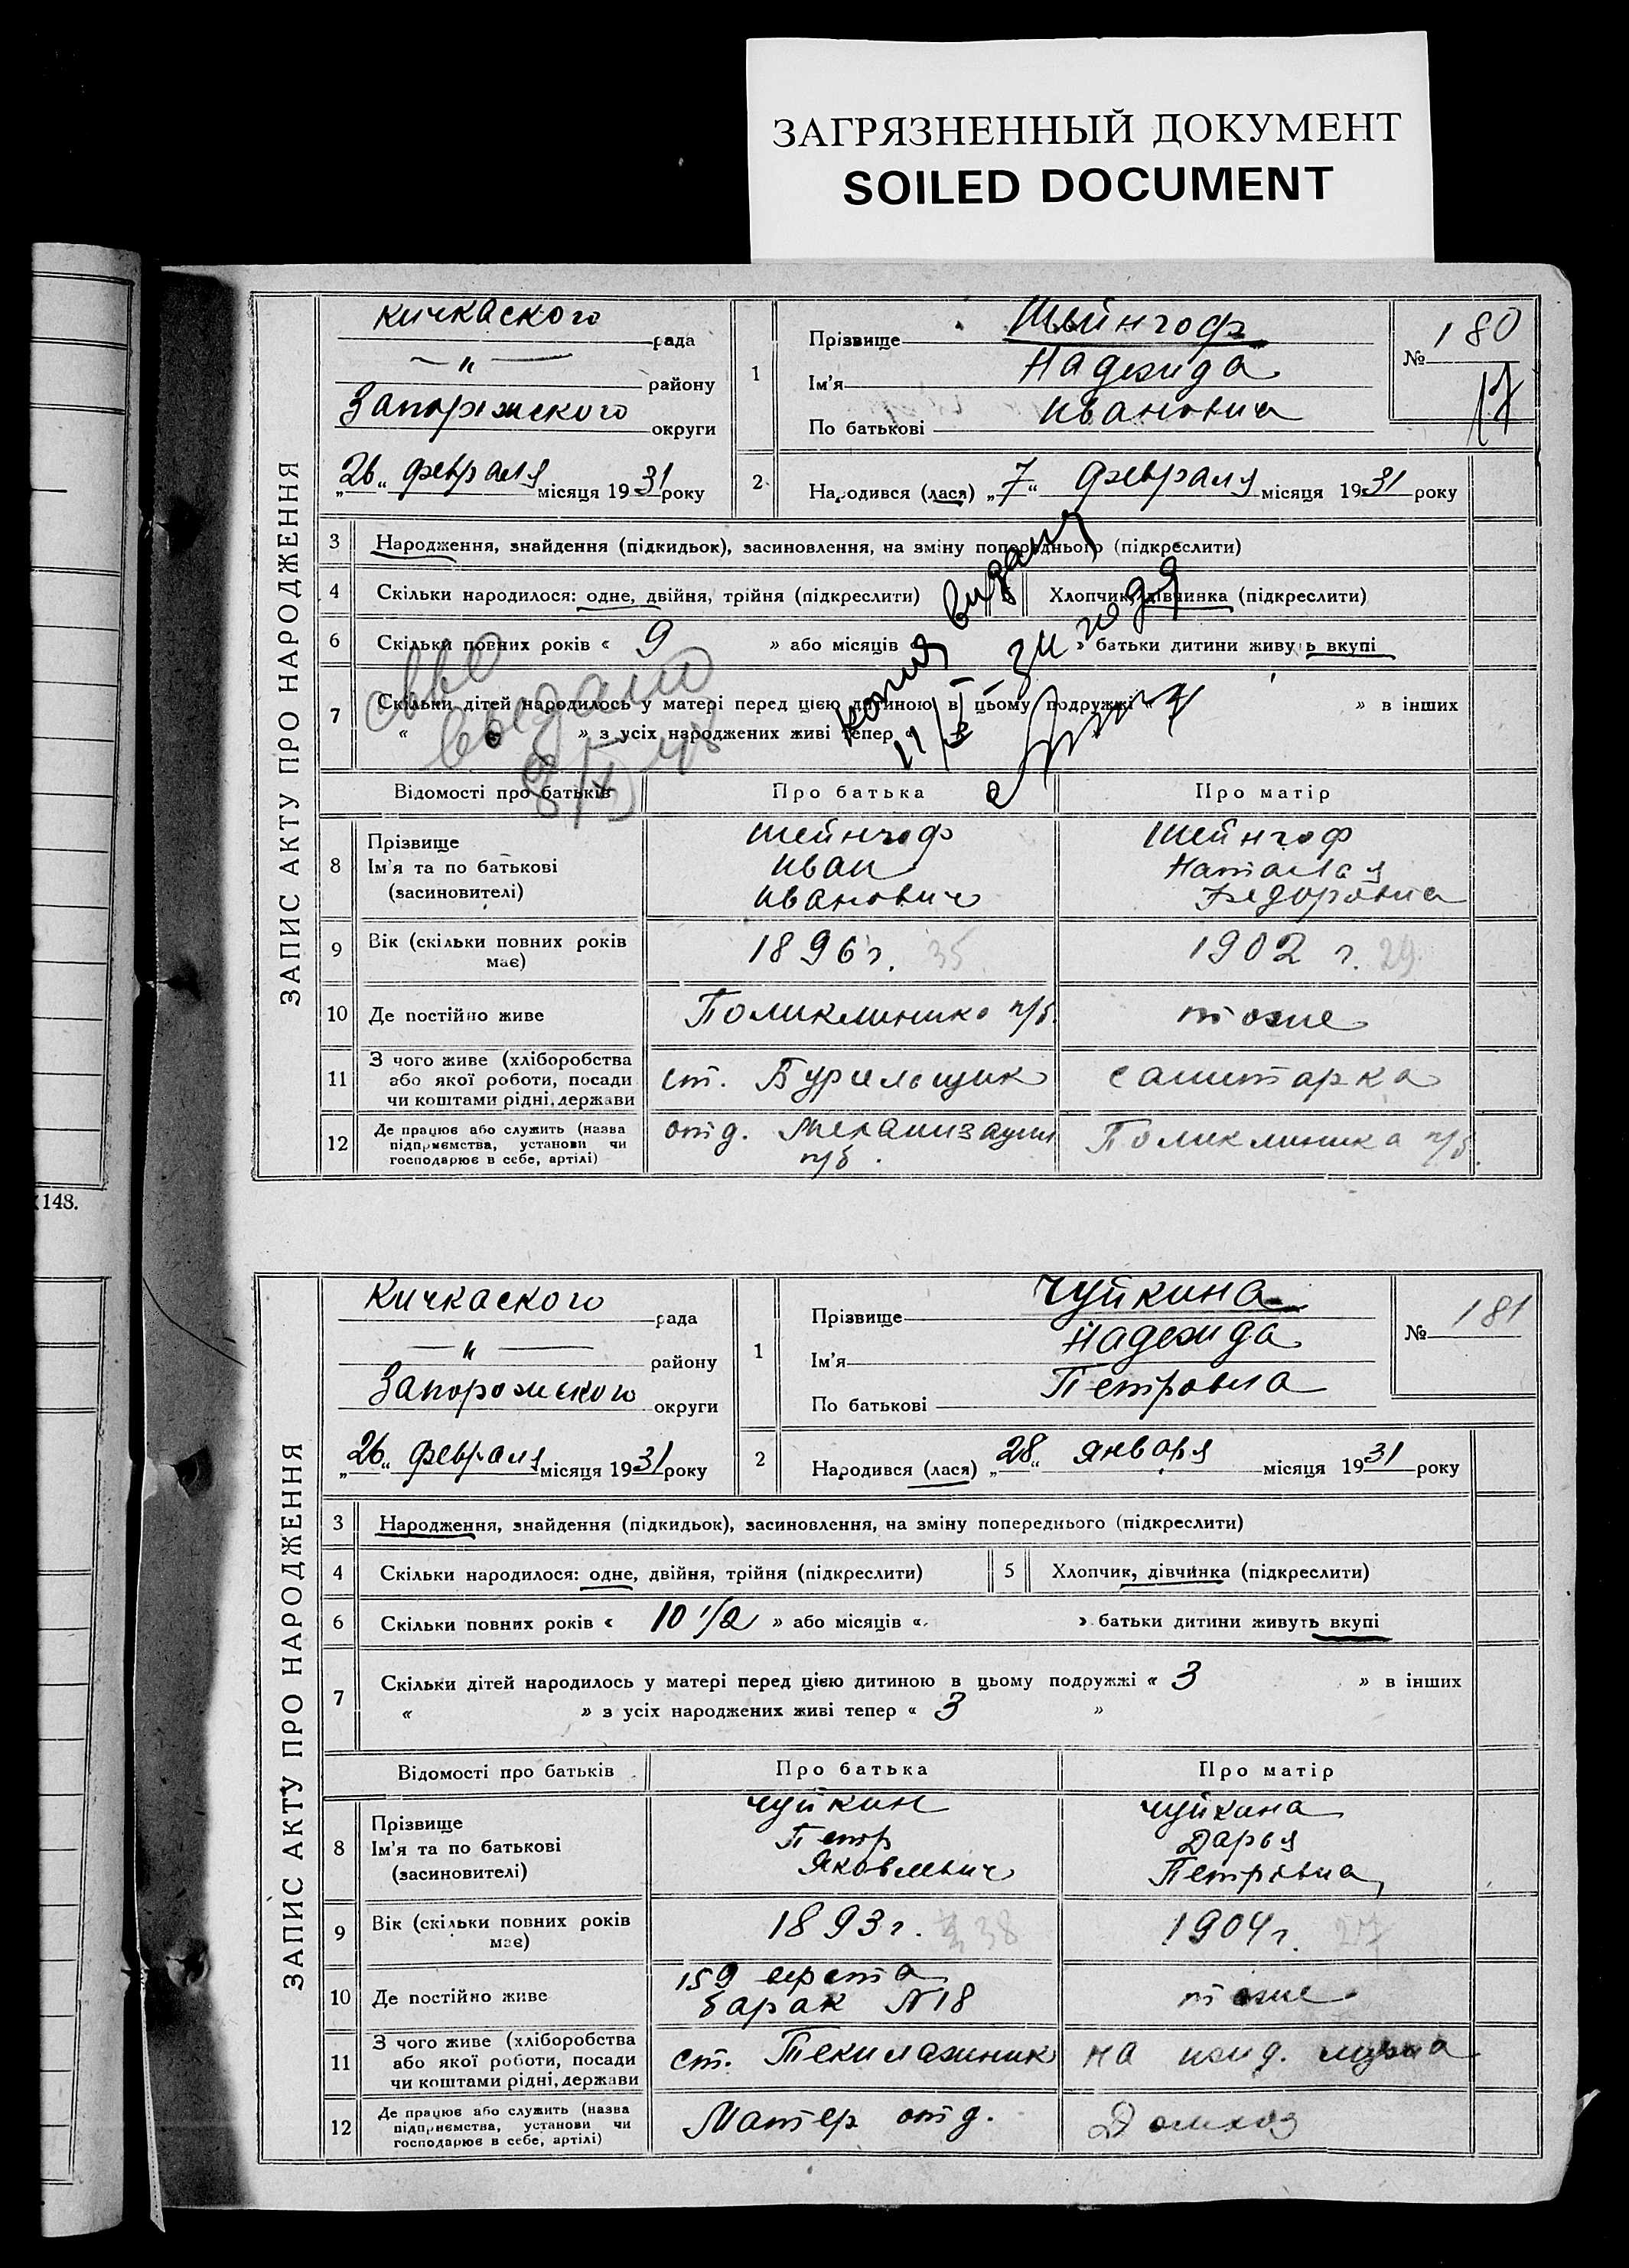 ЗАГРЯЗНЕННЫЙ ДОКУМЕНТ
SOILED DOCUMENT
148.
ЗАПИС АКТУ ПРО НАРОДЖЕННЯ
Кичкаского рада
— „ — району
Запоріжского округи
„26“ февраля місяця 1931 року
1 Прізвище Швейнгоф
Ім'я Надежида
По батькові Ивановна
№ 180
2 Народився (лася) „7“ февраля місяця 1931 року
3 Народження, знайдення (підкидьок), засиновлення, на зміну попереднього (підкреслити)
4 Скільки народилося: одне, двійня, трійня (підкреслити) Хлопчик, дівчинка (підкреслити)
6 Скільки повних років « 9 » або місяців « » батьки дитини живуть вкупі
7 Скільки дітей народилось у матері перед цією дитиною в цьому подружжі « » в інших
« » з усіх народжених живі тепер «
копия видана
11/X - 34 года
выдано
Відомості про батьків Про батька Про матір
8 Прізвище Шейнгоф Шейнгоф
Ім'я та по батькові Иван Наталья
(засиновителі) Иванович Федоровна
9 Вік (скільки повних років має) 1896 г. 35 1902 г. 29
10 Де постійно живе Поликлиника п/б. тоже
11 З чого живе (хліборобства або якої роботи, посади чи коштами рідні, держави ст. Бурильщик санитарка
12 Де працює або служить (назва підприємства, установи чи господарює в себе, артілі) отд. Механизации п/б. Поликлиника п/б.
ЗАПИС АКТУ ПРО НАРОДЖЕННЯ
Кичкаского рада
— „ — району
Запорожского округи
„26“ февраля місяця 1931 року
1 Прізвище Чуйкина
Ім'я Надежида
По батькові Петровна
№ 181
2 Народився (лася) „28“ января місяця 1931 року
3 Народження, знайдення (підкидьок), засиновлення, на зміну попереднього (підкреслити)
4 Скільки народилося: одне, двійня, трійня (підкреслити) 5 Хлопчик, дівчинка (підкреслити)
6 Скільки повних років « 10 1/2 » або місяців « » батьки дитини живуть вкупі
7 Скільки дітей народилось у матері перед цією дитиною в цьому подружжі « 3 » в інших
« » з усіх народжених живі тепер « 3 »
Відомості про батьків Про батька Про матір
8 Прізвище Чуйкин Чуйкина
Ім'я та по батькові Петр Дарья
(засиновителі) Яковлевич Петровна
9 Вік (скільки повних років має) 1893 г. 38 1904 г. 27
10 Де постійно живе 159 верста барак №18 тоже
11 З чого живе (хліборобства або якої роботи, посади чи коштами рідні, держави ст. на ижд. мужа
12 Де працює або служить (назва підприємства, установи чи господарює в себе, артілі) Матер отд. Домхоз